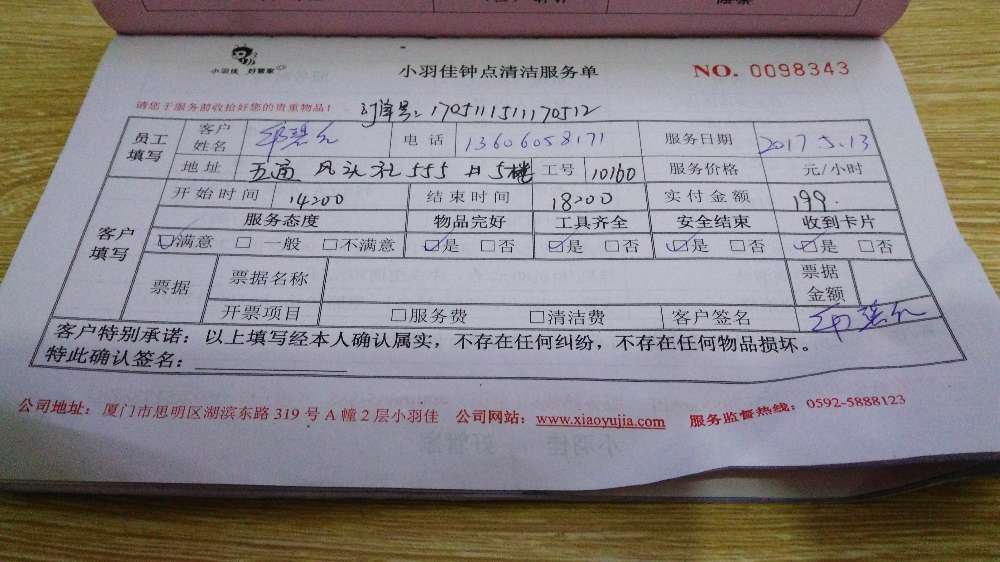 小羽佳 好管家
小羽佳钟点清洁服务单
NO. 0098343
请您于服务前收拾好您的贵重物品!
订单号: 1705111511170512
员工填写 客户姓名 电话 13606058171 服务日期 2017.5.13
地址 五通 凤头社 555 5楼 工号 10160 服务价格 元/小时
客户填写 开始时间 14:00 结束时间 18:00 实付金额 199.
服务态度 物品完好 工具齐全 安全结束 收到卡片
☑满意 □一般 □不满意 ☑是 □否 ☑是 □否 ☑是 □否 ☑是 □否
票据 票据名称 票据金额
开票项目 □服务费 □清洁费 客户签名
客户特别承诺:以上填写经本人确认属实,不存在任何纠纷,不存在任何物品损坏。
特此确认签名:
公司地址:厦门市思明区湖滨东路 319 号 A 幢 2 层小羽佳 公司网站:www.xiaoyujia.com 服务监督热线:0592-5888123